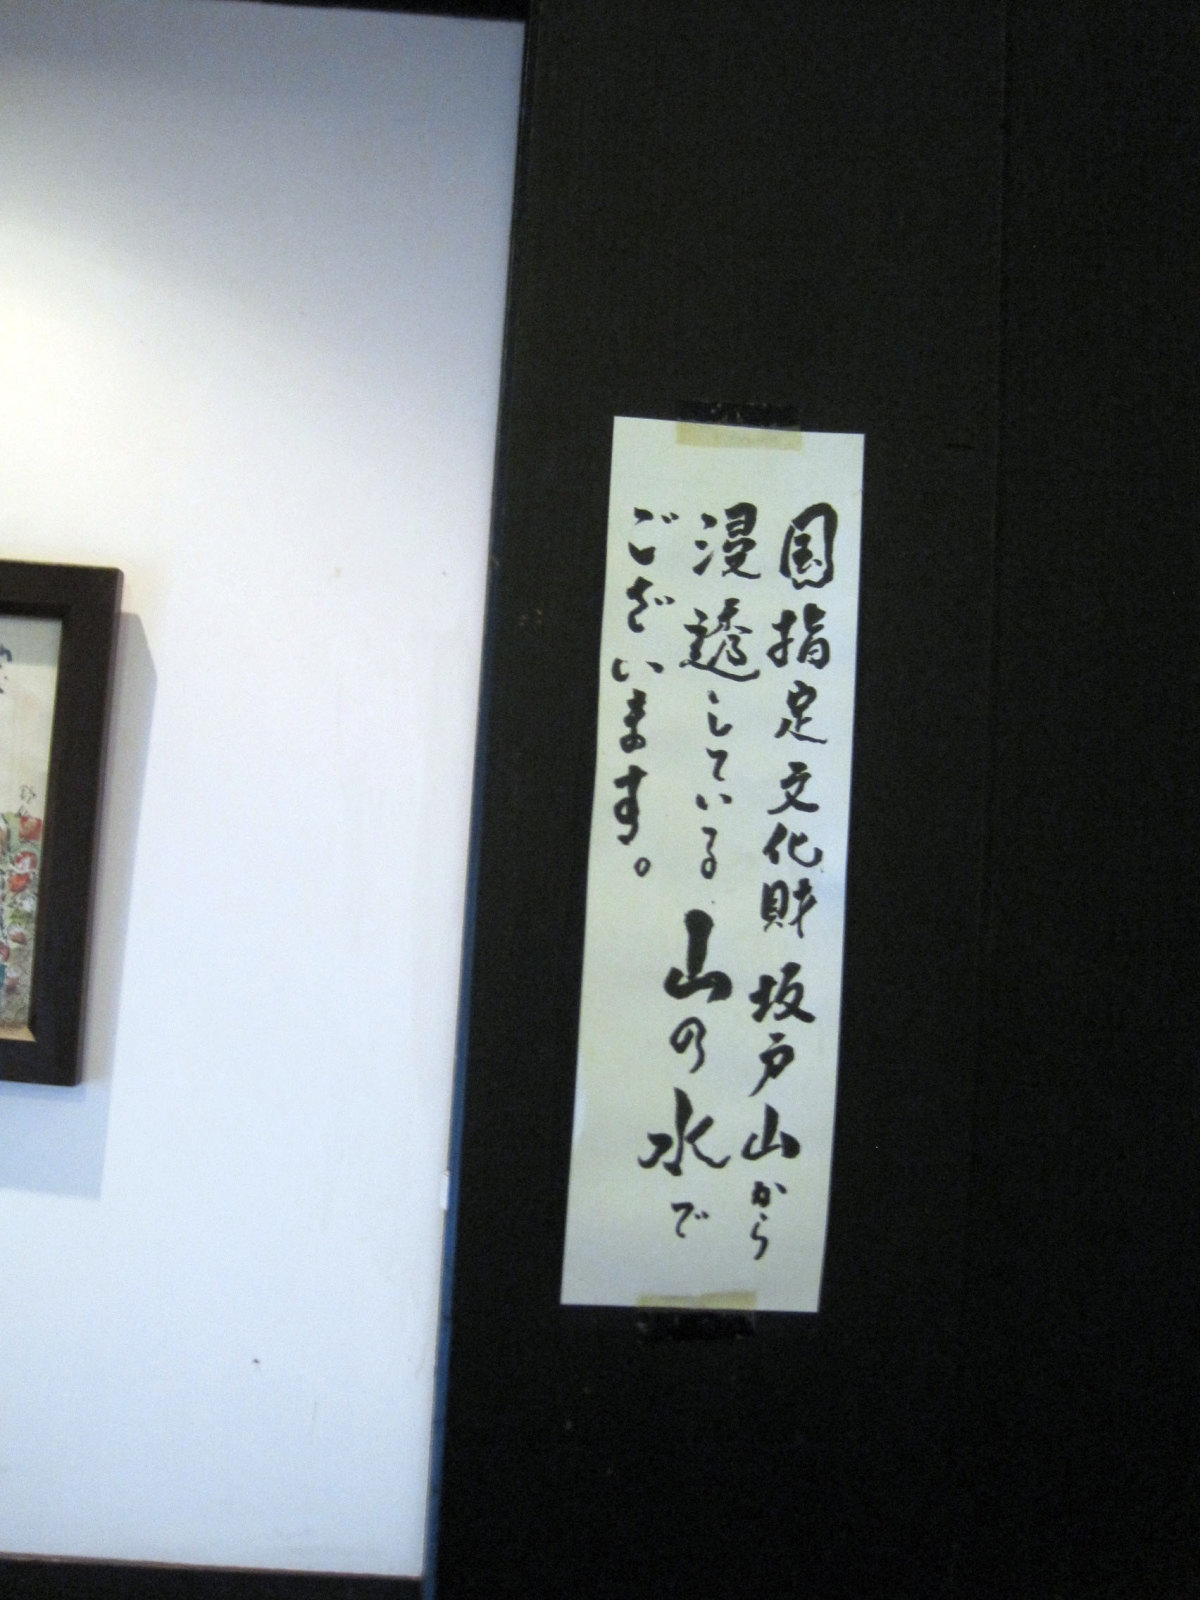 国指定文化財 坂戸山から
浸透している 山の水で
ございます。